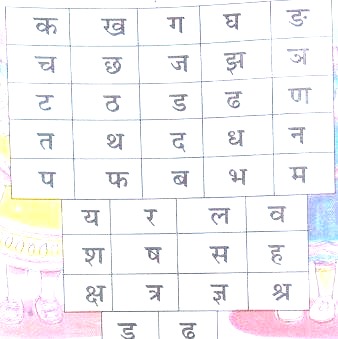 क ख ग घ ङ
च छ ज झ ञ
ट ठ ड ढ ण
त थ द ध न
प फ ब भ म
य र ल व
श ष स ह
क्ष त्र ज्ञ श्र
ड ढ